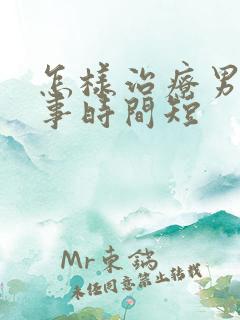 怎樣治療男
事時間短
Mr東鍋
未经同意禁止转载